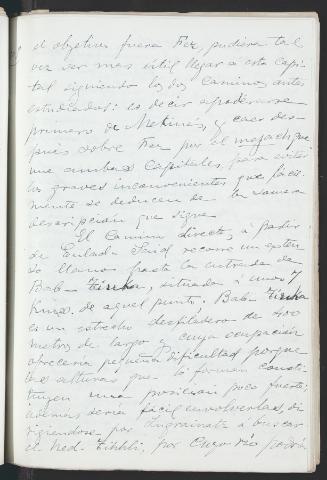 el objetivo fuera Fez, pudiera tal
vez ser mas útil llegar a esta Capi-
tal siguiendo los dos caminos antes
estudiados: es decir apoderarse
primero de Mekinés, y caer des-
pués sobre Fez por el que
une ambas Capitales, para evitar
los graves inconvenientes que fácil-
mente se deducen de la somera
descripción que sigue
El Camino directo, á partir
de Eulad Said recorre un exten-
so llano hasta la entrada de
Bab-Tiuka, situada á unos 7
Kms. de aquel punto. Bab-Tiuka
es un estrecho desfiladero de 400
metros de largo y cuya ocupación
ofrecería pequeña dificultad porque
las alturas que lo forman consti-
tuyen una posición poco fuerte;
además sería fácil envolverlas, di-
rigiéndose por a buscar
el Ued. Tihhli, por cuyo río podría